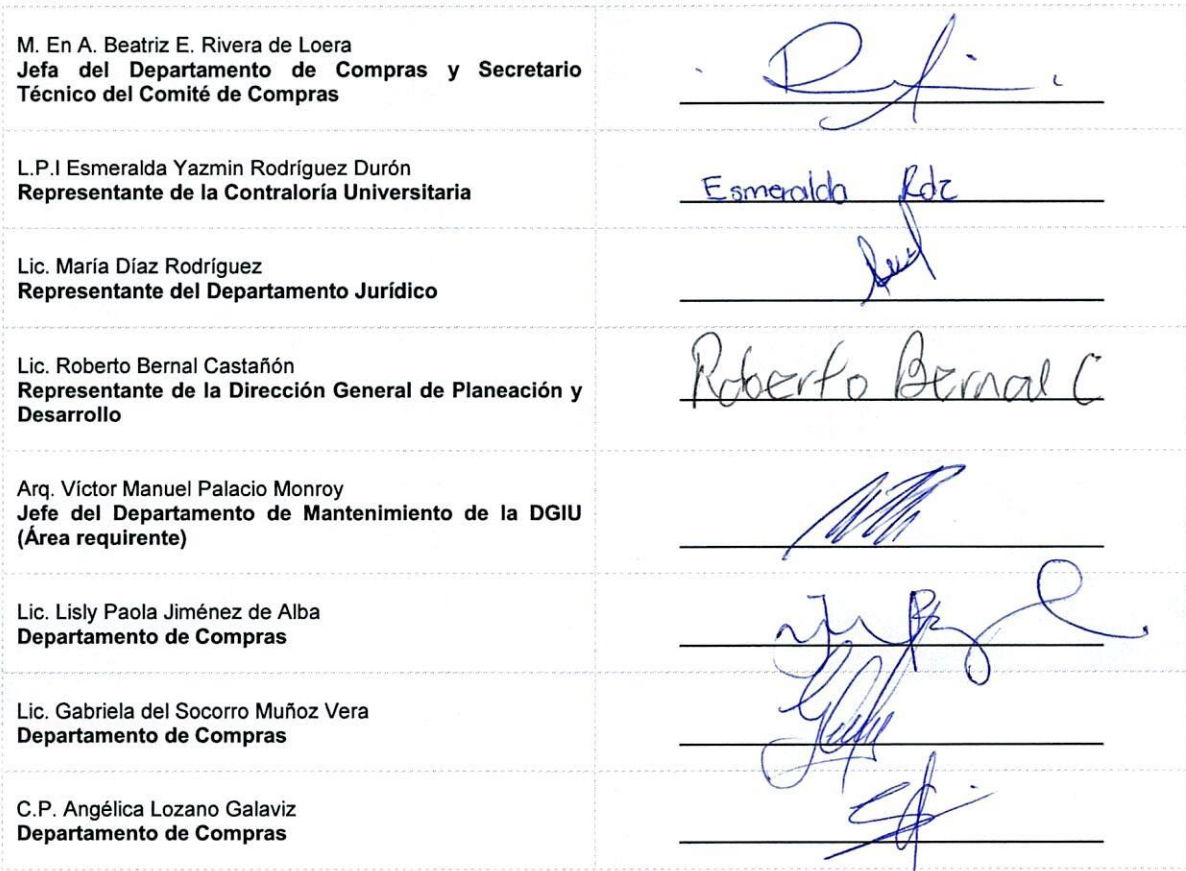 M. En A. Beatriz E. Rivera de Loera
Jefa del Departamento de Compras y Secretario
Técnico del Comité de Compras
L.P.I Esmeralda Yazmin Rodríguez Durón
Representante de la Contraloría Universitaria
Esmeralda Rdz
Lic. María Díaz Rodríguez
Representante del Departamento Jurídico
Lic. Roberto Bernal Castañón
Representante de la Dirección General de Planeación y
Desarrollo
Roberto Bernal C
Arq. Víctor Manuel Palacio Monroy
Jefe del Departamento de Mantenimiento de la DGIU
(Área requirente)
Lic. Lisly Paola Jiménez de Alba
Departamento de Compras
Lic. Gabriela del Socorro Muñoz Vera
Departamento de Compras
C.P. Angélica Lozano Galaviz
Departamento de Compras